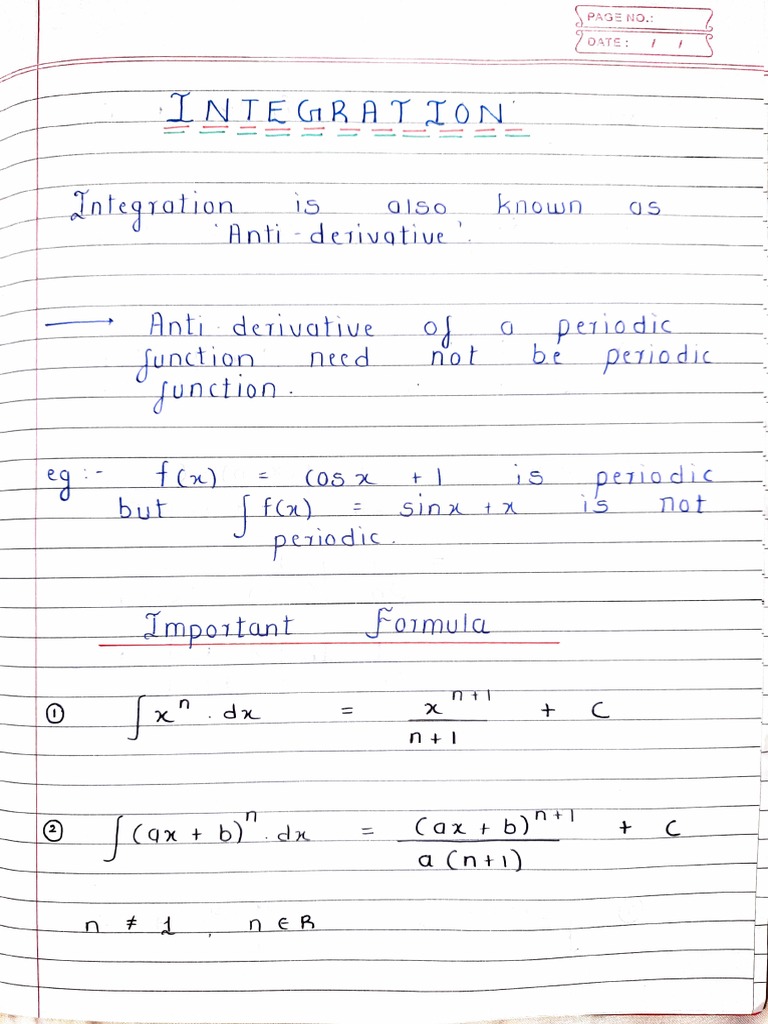 PAGE NO.:
DATE: / /
INTEGRATION
Integration is also known as
'Anti-derivative'.
→ Anti derivative of a periodic
function need not be periodic
function.
eg:- f(x) = cosx + 1 is periodic
but ∫f(x) = sinx + x is not
periodic.
Important Formula
① ∫xⁿ. dx = xⁿ⁺¹/n+1 + C
② ∫(ax + b)ⁿ. dx = (ax + b)ⁿ⁺¹/a(n+1) + C
n ≠ 1, n ∈ R